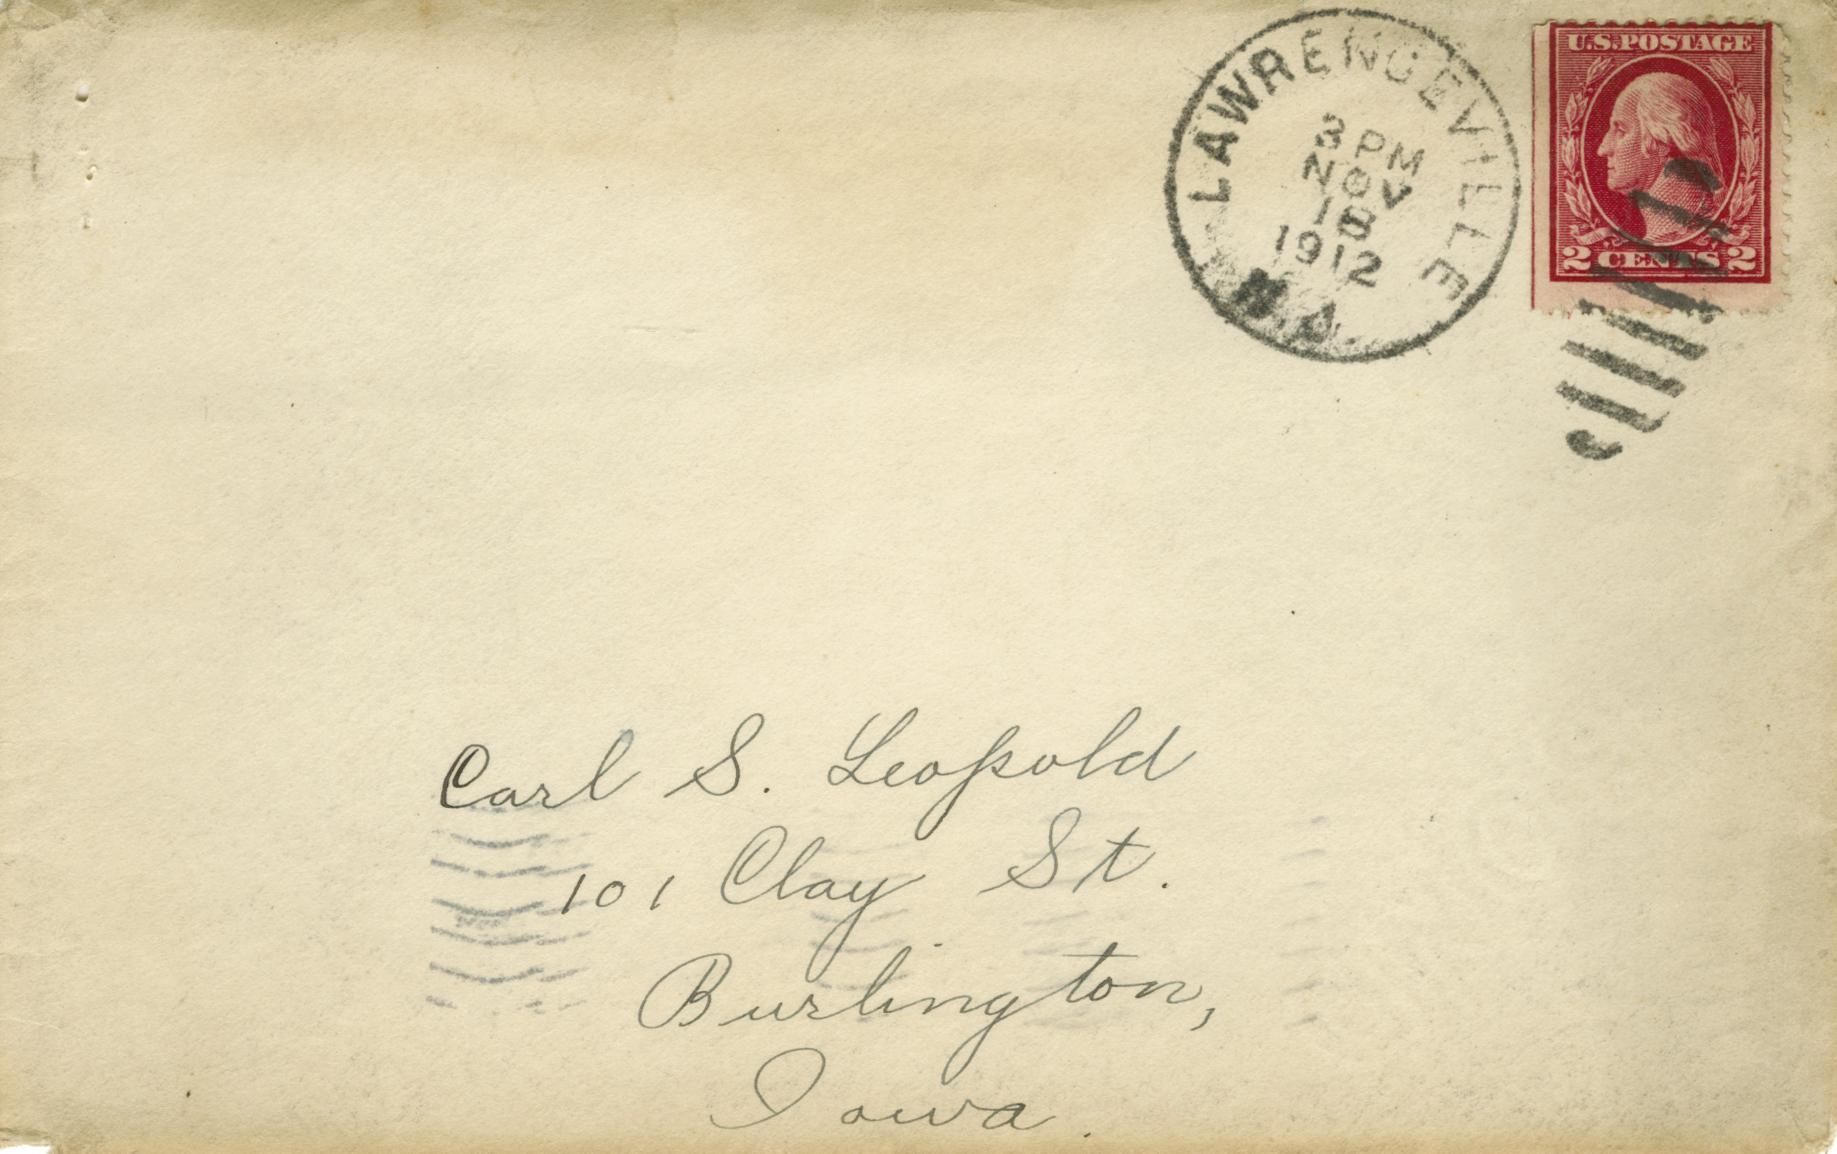 LAWRENCEVILLE
3 PM
NOV
18
1912
N.J.
U.S. POSTAGE
2 CENTS 2
Carl S. Leopold
101 Clay St.
Burlington,
Iowa.